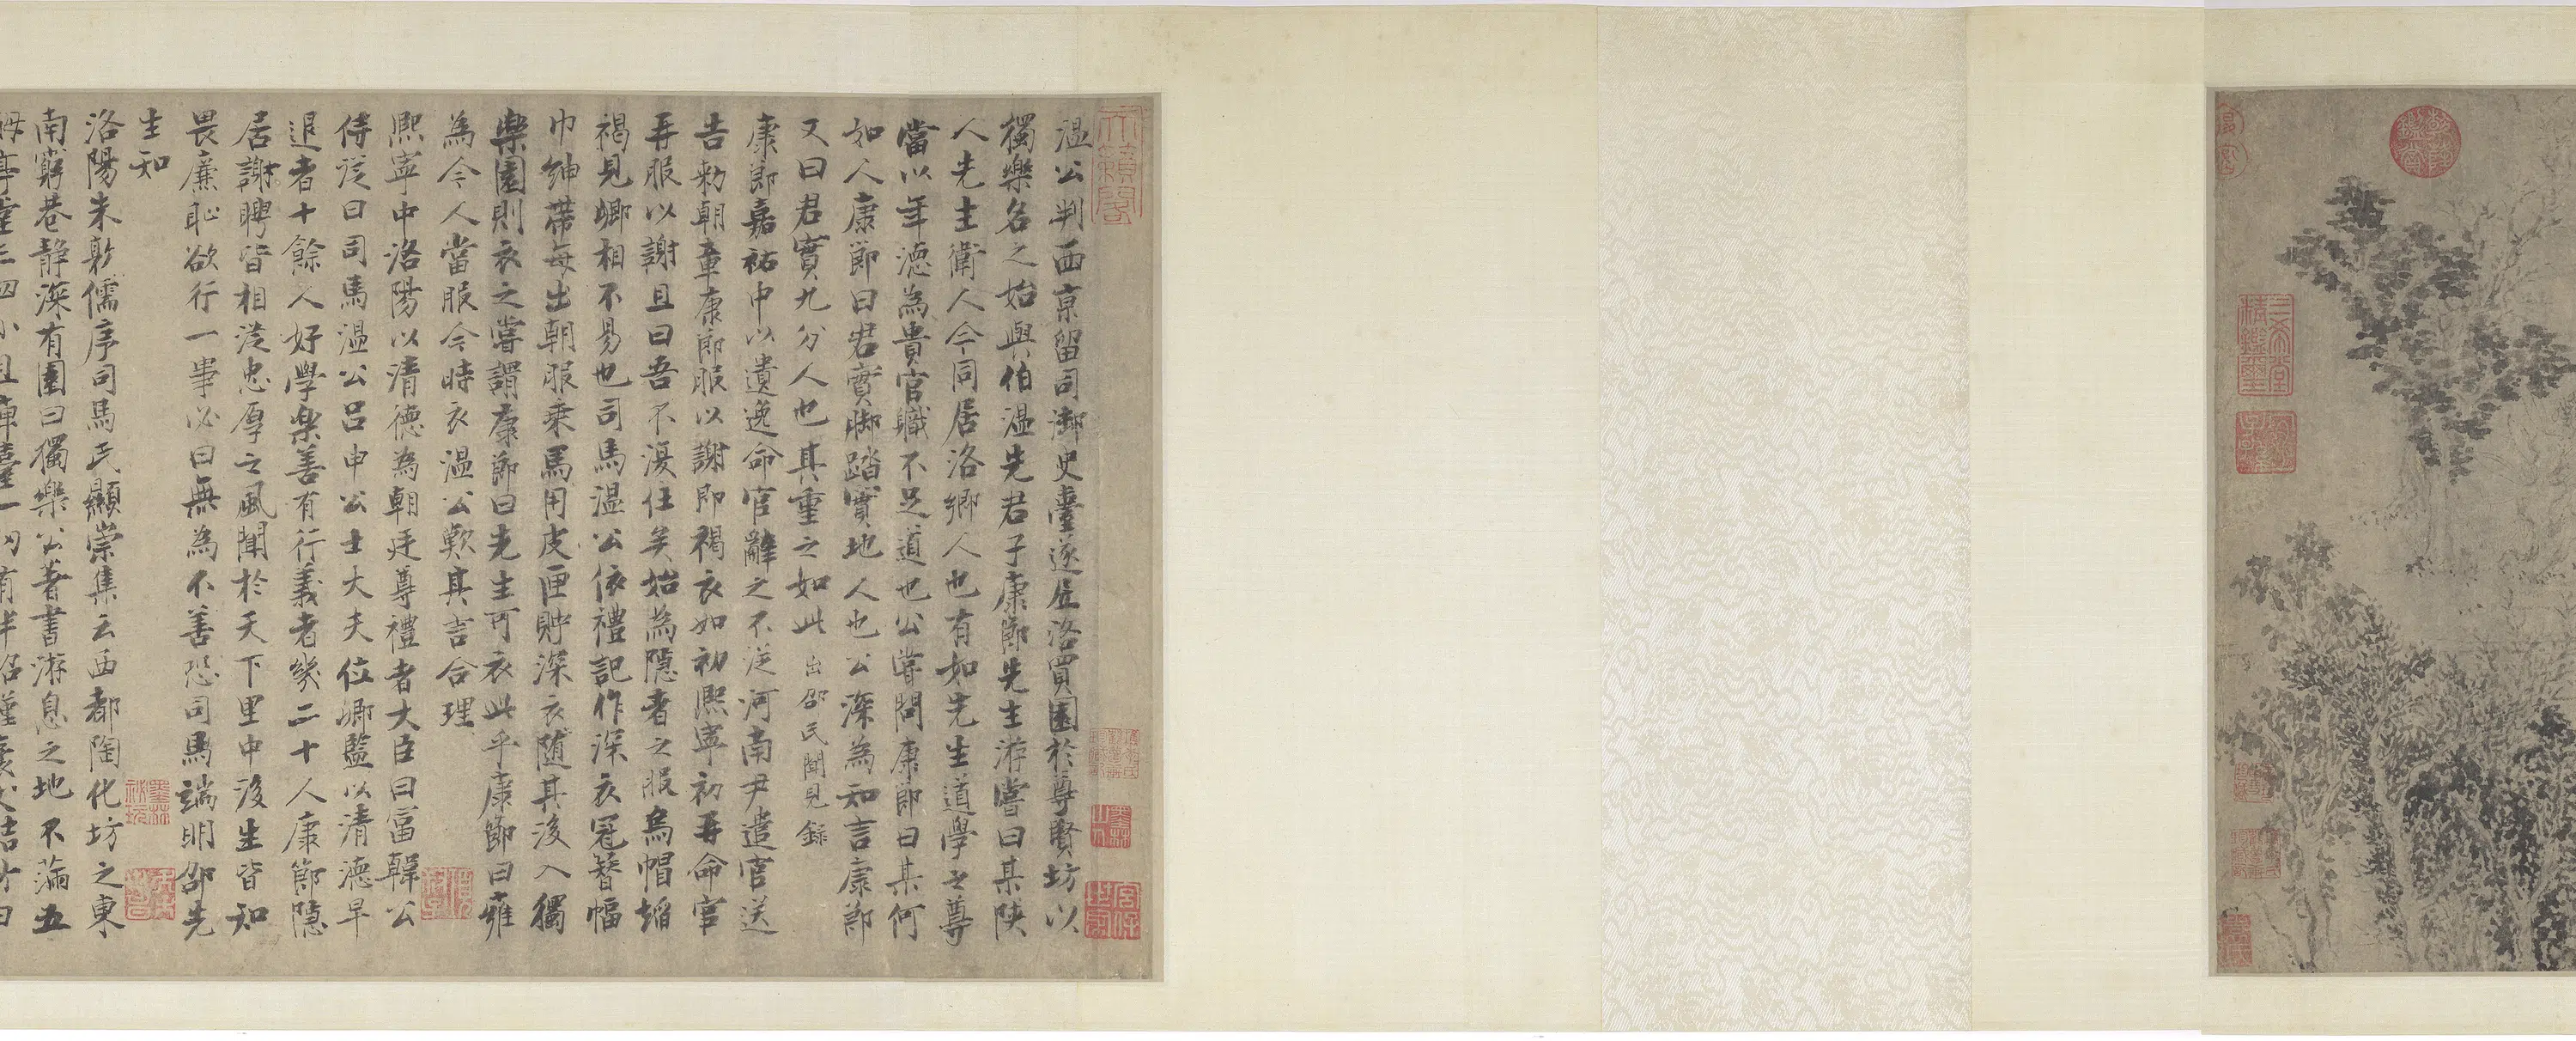 溫公判西京留司御史臺遂居洛買園於尊賢坊以
獨樂名之始與伯溫先君子康節先生游嘗曰某陝
人先生衛人今同居洛鄉人也有如先生道學之尊
當以年德為貴官職不足道也公嘗問康節曰某何
如人康節曰君實腳踏實地人也公深為知言康節
又曰君實九分人也其重之如此出邵氏聞見錄
康節嘉祐中以遺逸命官辭之不從河南尹遣官送
告敕朝章康節服以謝即褐衣如初熙寧初再命官
再服以謝且曰吾不復仕矣始為隱者之服烏帽縚
褐見卿相不易也司馬溫公依禮記作深衣冠簪幅
巾紳帶每出朝服乘馬用皮匣貯深衣隨其後入獨
樂園則衣之嘗謂康節曰先生可衣此乎康節曰雍
為今人當服今時衣溫公歎其言合理
熙寧中洛陽以清德為朝廷尊禮者大臣曰富韓公
侍從曰司馬溫公呂申公士大夫位卿監以清德早
退者十餘人好學樂善有行義者幾二十人康節隱
居謝聘皆相從忠厚之風聞於天下里中後生皆知
畏廉恥欲行一事必曰無為不善恐司馬端明邵先
生知
洛陽朱敦儒序司馬氏顯崇集云西都陶化坊之東
南窮巷靜深有園曰獨樂公著書游息之地不滿五